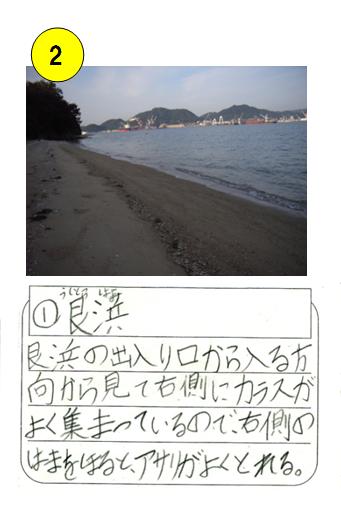 2
うしとら はま
①艮浜
艮浜の出入り口から入る方
向から見て右側にカラスが
よく集まっているので、右側の
はまをほると、アサリがよくとれる。